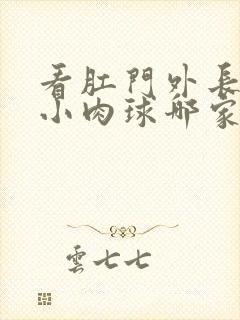 看肛門外長
小肉球哪家
雲七七